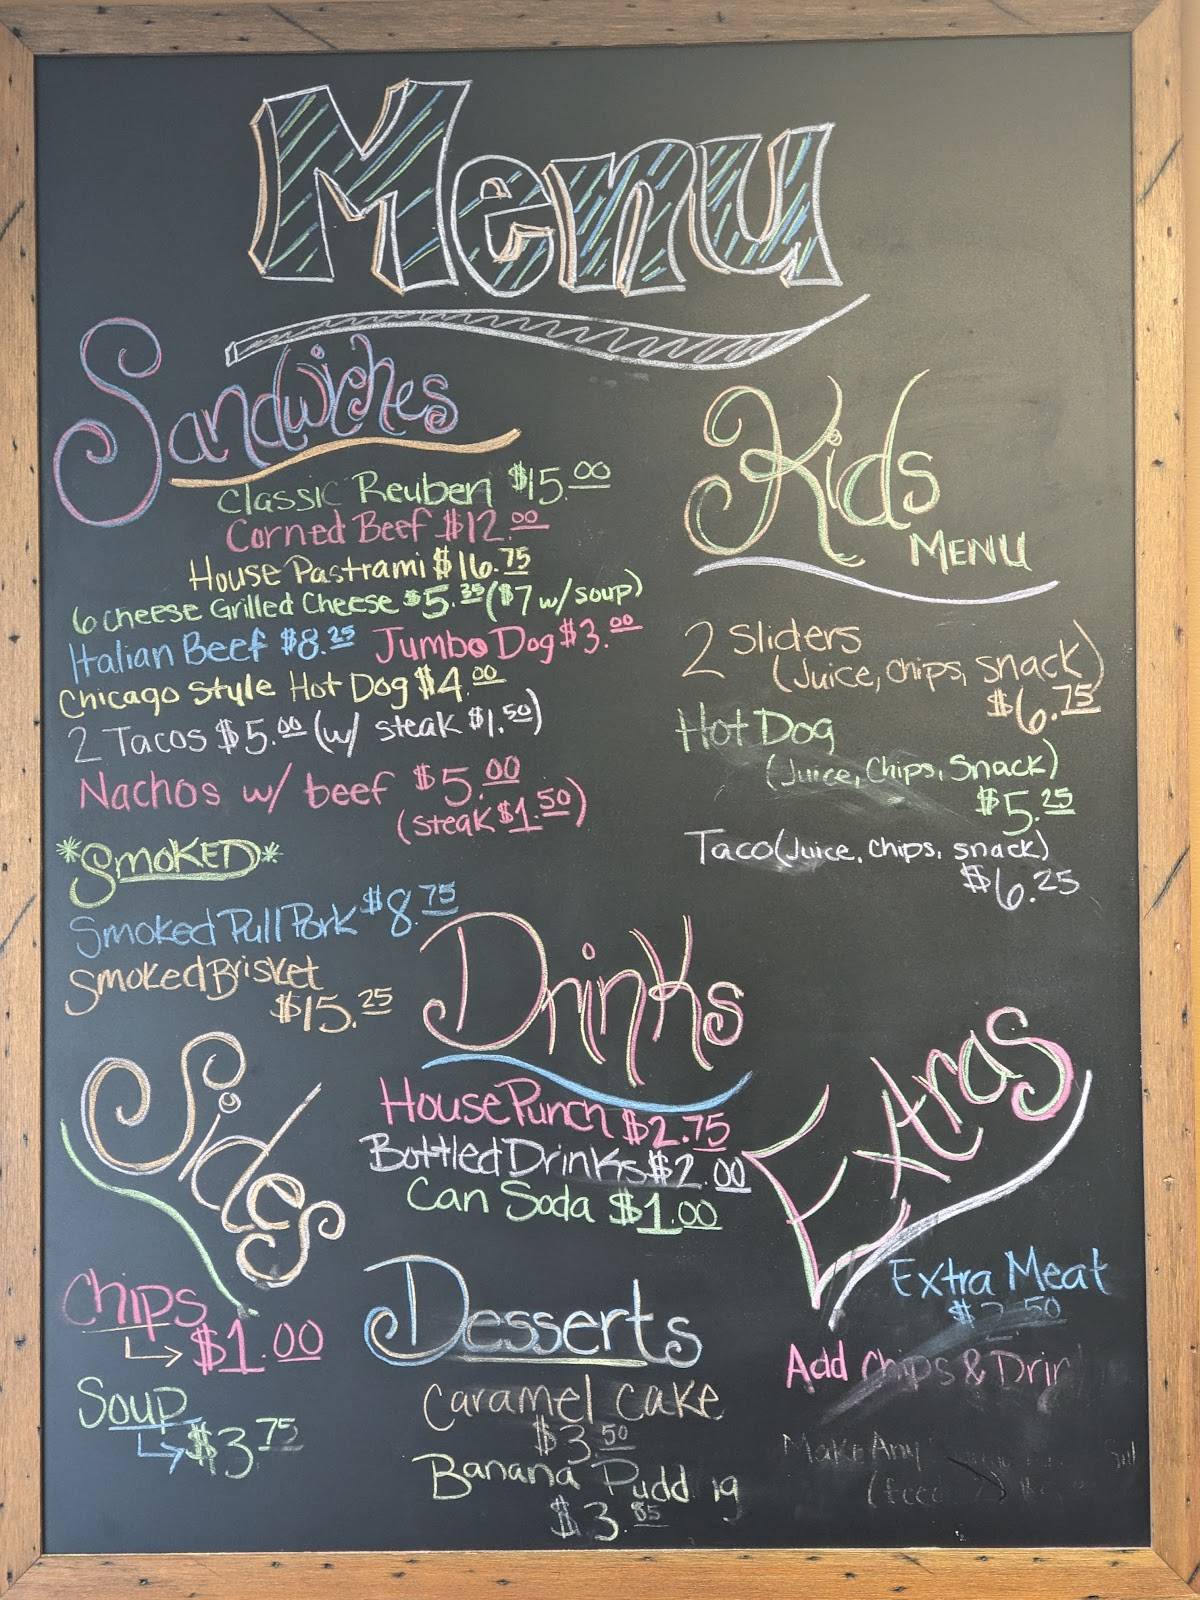 Menu
Sandwiches
Classic Reuben $15.00
Corned Beef $12.00
House Pastrami $16.75
6 cheese Grilled Cheese $5.35 ($7 w/soup)
Italian Beef $8.25 Jumbo Dog $3.00
Chicago Style Hot Dog $4.00
2 Tacos $5.00 (w/ steak $1.50)
Nachos w/ beef $5.00
(steak $1.50)
*SMOKED*
Smoked Pull Pork $8.75
Smoked Brisket
$15.25
Kids
MENU
2 Sliders
(Juice, chips, snack)
$6.75
Hot Dog
(Juice, Chips, Snack)
$5.25
Taco (Juice, chips, snack)
$6.25
Sides
Chips
$1.00
Soup
$3.75
Drinks
House Punch $2.75
Bottled Drinks $2.00
Can Soda $1.00
Desserts
Caramel Cake
$3.50
Banana Pudd ig
$3.85
Extras
Extra Meat
$2.50
Add Chips & Drin
Make Any